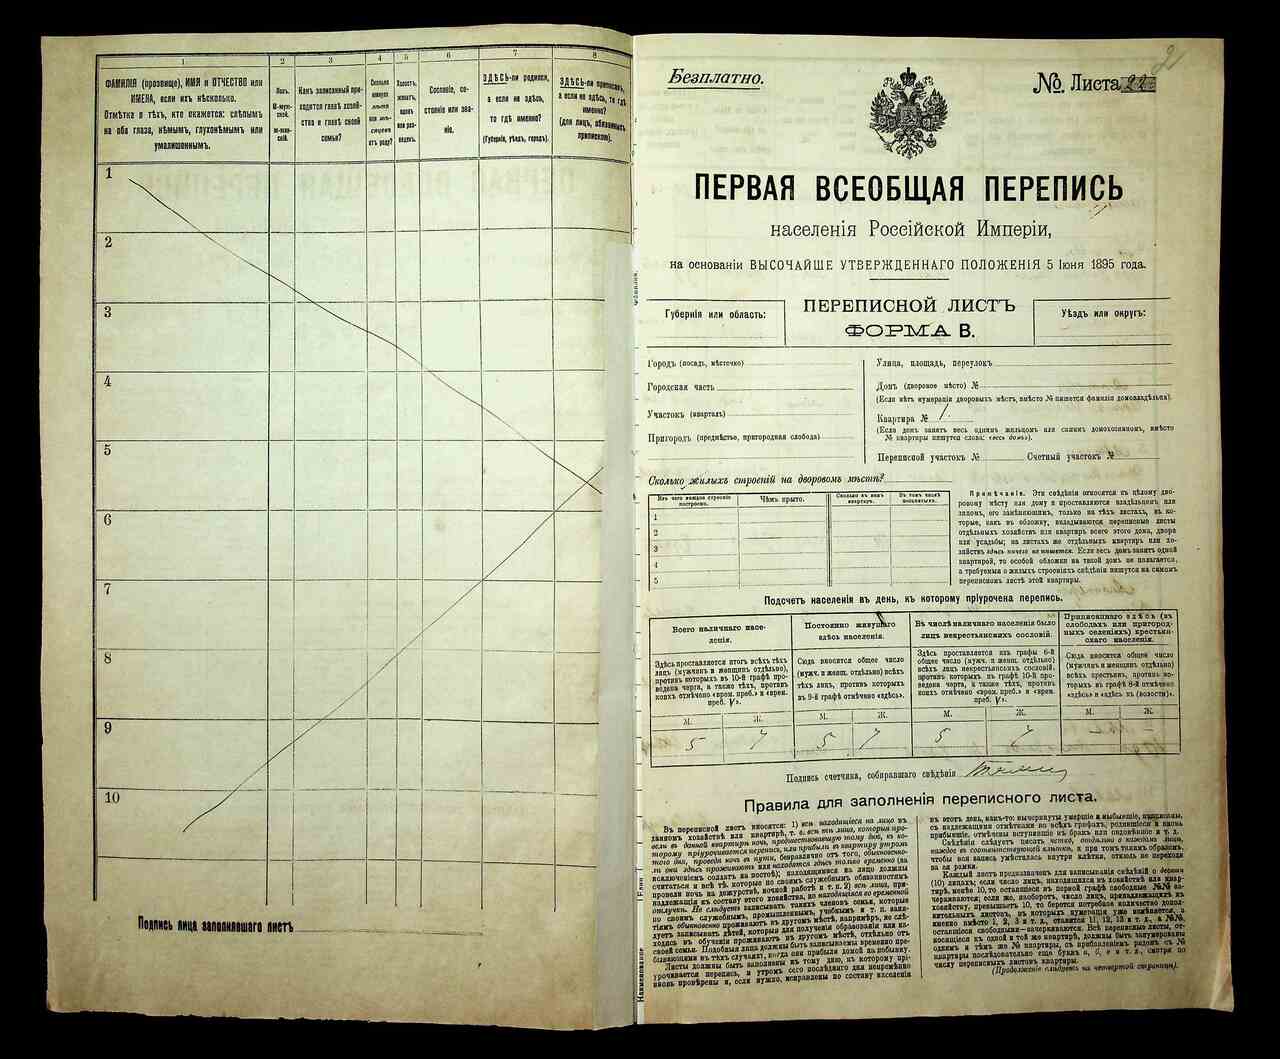 1
2
3
4
5
6
7
8
ФАМИЛІЯ (прозвище), ИМЯ и ОТЧЕСТВО или
ИМЕНА, если ихъ нѣсколько.
Отмѣтка о тѣхъ, кто окажется: слѣпымъ
на оба глаза, нѣмымъ, глухонѣмымъ или
умалишеннымъ.
Полъ.
М-муж-
ской.
Ж-жен-
скій.
Какъ записанный при-
ходится главѣ хозяй-
ства и главѣ своей
семьи?
Сколько
минуло
лѣтъ
или мѣ-
сяцевъ
отъ роду?
Холостъ,
женатъ,
вдовъ
или раз-
веденъ.
Сословіе, со-
стояніе или зва-
ніе.
ЗДѢСЬ-ли родился,
а если не здѣсь,
то гдѣ именно?
(Губернія, уѣздъ, городъ).
ЗДѢСЬ-ли приписанъ,
а если не здѣсь, то гдѣ
именно?
(для лицъ, обязанныхъ
припискою).
1
2
3
4
5
6
7
8
9
10
Подпись лица заполнявшаго листъ
2
Безплатно.
№ Листа 22
ПЕРВАЯ ВСЕОБЩАЯ ПЕРЕПИСЬ
населенія Россійской Имперіи,
на основаніи ВЫСОЧАЙШЕ УТВЕРЖДЕННАГО ПОЛОЖЕНІЯ 5 Іюня 1895 года.
Губернія или область:
ПЕРЕПИСНОЙ ЛИСТЪ
ФОРМА В.
Уѣздъ или округъ:
Городъ (посадъ, мѣстечко)
Городская часть
Участокъ (кварталъ)
Пригородъ (предмѣстье, пригородная слобода)
Улица, площадь, переулокъ
Домъ (дворовое мѣсто) №
(Если нѣтъ нумераціи дворовыхъ мѣстъ, вмѣсто № пишется фамилія домовладѣльца).
Квартира № 1.
(Если домъ занятъ весь однимъ жильцомъ или самимъ домохозяиномъ, вмѣсто
№ квартиры пишутся слова: «весь домъ»).
Переписной участокъ № Счетный участокъ №
Сколько жилыхъ строеній на дворовомъ мѣстѣ?
Изъ чего каждое строеніе
построено.
Чѣмъ крыто.
Сколько въ немъ
квартиръ.
Въ томъ числѣ
1
2
3
4
5
Примѣчаніе. Эти свѣдѣнія относятся къ цѣлому дво-
ровому мѣсту или дому и проставляются владѣльцемъ или
лицомъ, его замѣняющимъ, только на тѣхъ листахъ, въ ко-
торые, какъ въ обложку, вкладываются переписные листы
отдѣльныхъ хозяйствъ или квартиръ всего этого дома, двора
или усадьбы; на листахъ же отдѣльныхъ квартиръ или хо-
зяйствъ здѣсь ничего не пишется. Если весь домъ занятъ одной
квартирой, то особой обложки на такой домъ не полагается,
а требуемыя о жилыхъ строеніяхъ свѣдѣнія пишутся на самомъ
переписномъ листѣ этой квартиры.
Подсчетъ населенія въ день, къ которому пріурочена перепись.
Всего наличнаго насе-
ленія.
Постоянно живущаго
здѣсь населенія.
Въ числѣ наличнаго населенія было
лицъ некрестьянскихъ сословій.
Приписаннаго здѣсь (въ
слободахъ или пригород-
ныхъ селеніяхъ) крестьян-
скаго населенія.
Здѣсь проставляется итогъ всѣхъ тѣхъ
лицъ (мужчинъ и женщинъ отдѣльно),
противъ которыхъ въ 10-й графѣ про-
ведена черта, а также тѣхъ, против
коихъ отмѣчено «врем. преб.» и «врем.
преб. V».
Сюда вносится общее число
(мужч. и женщ. отдѣльно) всѣхъ
тѣхъ лицъ, противъ которыхъ
въ 9-й графѣ отмѣчено «здѣсь».
Здѣсь проставляется изъ графы 6-й
общее число (мужч. и женщ. отдѣльно)
всѣхъ лицъ некрестьянскихъ сословій,
противъ которыхъ въ графѣ 10-й про-
ведена черта, а также тѣхъ, противъ
коихъ отмѣчено «врем. преб.» и «врем.
преб. V».
Сюда вносится общее число
(мужчинъ и женщинъ отдѣльно)
всѣхъ крестьянъ, противъ ко-
торыхъ въ графѣ 8-й отмѣчено
«здѣсь» и «здѣсь въ (волости)».
М. Ж. М. Ж. М. Ж. М. Ж.
5 7 5 7 5 7 –
Подпись счетчика, собиравшаго свѣдѣнія
Правила для заполненія переписного листа.
Въ переписной листъ вносятся: 1) всѣ находящіеся на лицо въ
данномъ хозяйствѣ или квартирѣ, т. е. всѣ тѣ лица, которыя про-
вели въ данной квартирѣ ночь, предшествовавшую тому дню, къ ко-
торому пріурочивается перепись, или прибыли въ квартиру утромъ
того дня, проведя ночь въ пути, безразлично отъ того, обыкновенно-
ли они здѣсь проживаютъ или находятся здѣсь только временно (за
исключеніемъ солдатъ на постоѣ); находящимися на лицо должны
считаться и всѣ тѣ, которые по своимъ служебнымъ обязанностямъ
провели ночь на дежурствѣ, ночной работѣ и т. п. 2) всѣ лица, при-
надлежащія къ составу этого хозяйства, но находящіяся во временной
отлучкѣ. Не слѣдуетъ записывать такихъ членовъ семьи, которые
по своимъ служебнымъ, промышленнымъ, учебнымъ и т. п. заня-
тіямъ обыкновенно проживаютъ въ другомъ мѣстѣ, напримѣръ, не слѣ-
дуетъ записывать дѣтей, которыя для полученія образованія или на-
ходясь въ обученіи проживаютъ въ другомъ мѣстѣ, отдѣльно отъ
семьи. Подобныя лица должны быть записываемы временно пре-
бывающими въ тѣхъ случаяхъ, когда они прибыли домой на побывку.
Листы должны быть заполнены къ тому дню, къ которому прі-
урочивается перепись, и утромъ сего послѣдняго дня непремѣнно
вновь провѣрены и, если нужно, исправлены по составу населенія
въ этотъ день, какъ-то: вычеркнуты умершіе и выбывшіе, вписаны,
съ надлежащими отмѣтками во всѣхъ графахъ, родившіеся и вновь
прибывшіе, отмѣчены вступившіе въ бракъ или овдовѣвшіе и т. д.
Свѣдѣнія слѣдуетъ писать четко, отдѣльно о каждомъ лицѣ,
каждое въ соотвѣтствующей клѣткѣ, и при томъ такимъ образомъ,
чтобы вся запись умѣстилась внутри клѣтки, отнюдь не переходя
за ея рамки.
Каждый листъ предназначенъ для записыванія свѣдѣній о десяти
(10) лицахъ; если число лицъ, находящихся въ хозяйствѣ или квар-
тирѣ, менѣе 10, то остающіеся въ первой графѣ свободные №№ за-
черкиваются; если же, наоборотъ, число лицъ, принадлежащихъ къ
хозяйству, превышаетъ 10, то берется потребное количество допол-
нительныхъ листовъ, въ которыхъ нумерація уже измѣняется, а
именно вмѣсто 1, 2, 3 и т. д., ставится 11, 12, 13 и т. д., а №№,
остающіеся свободными—зачеркиваются. Всѣ переписные листы, от-
носящіеся къ одной и той же квартирѣ, должны быть занумерованы
однимъ и тѣмъ же № квартиры, съ прибавленіемъ рядомъ съ №
квартиры послѣдовательно еще буквъ а, б, в и т. д., смотря по
числу переписныхъ листовъ квартиры.
(Продолженіе слѣдуетъ на четвертой страницѣ).